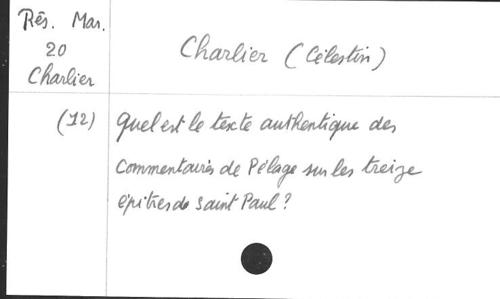 Rés. Mar.
20
Charlier
Charlier (Célestin)
(12) Quel est le texte authentique des
commentaires de Pélage sur les treize
épitres de Saint Paul ?